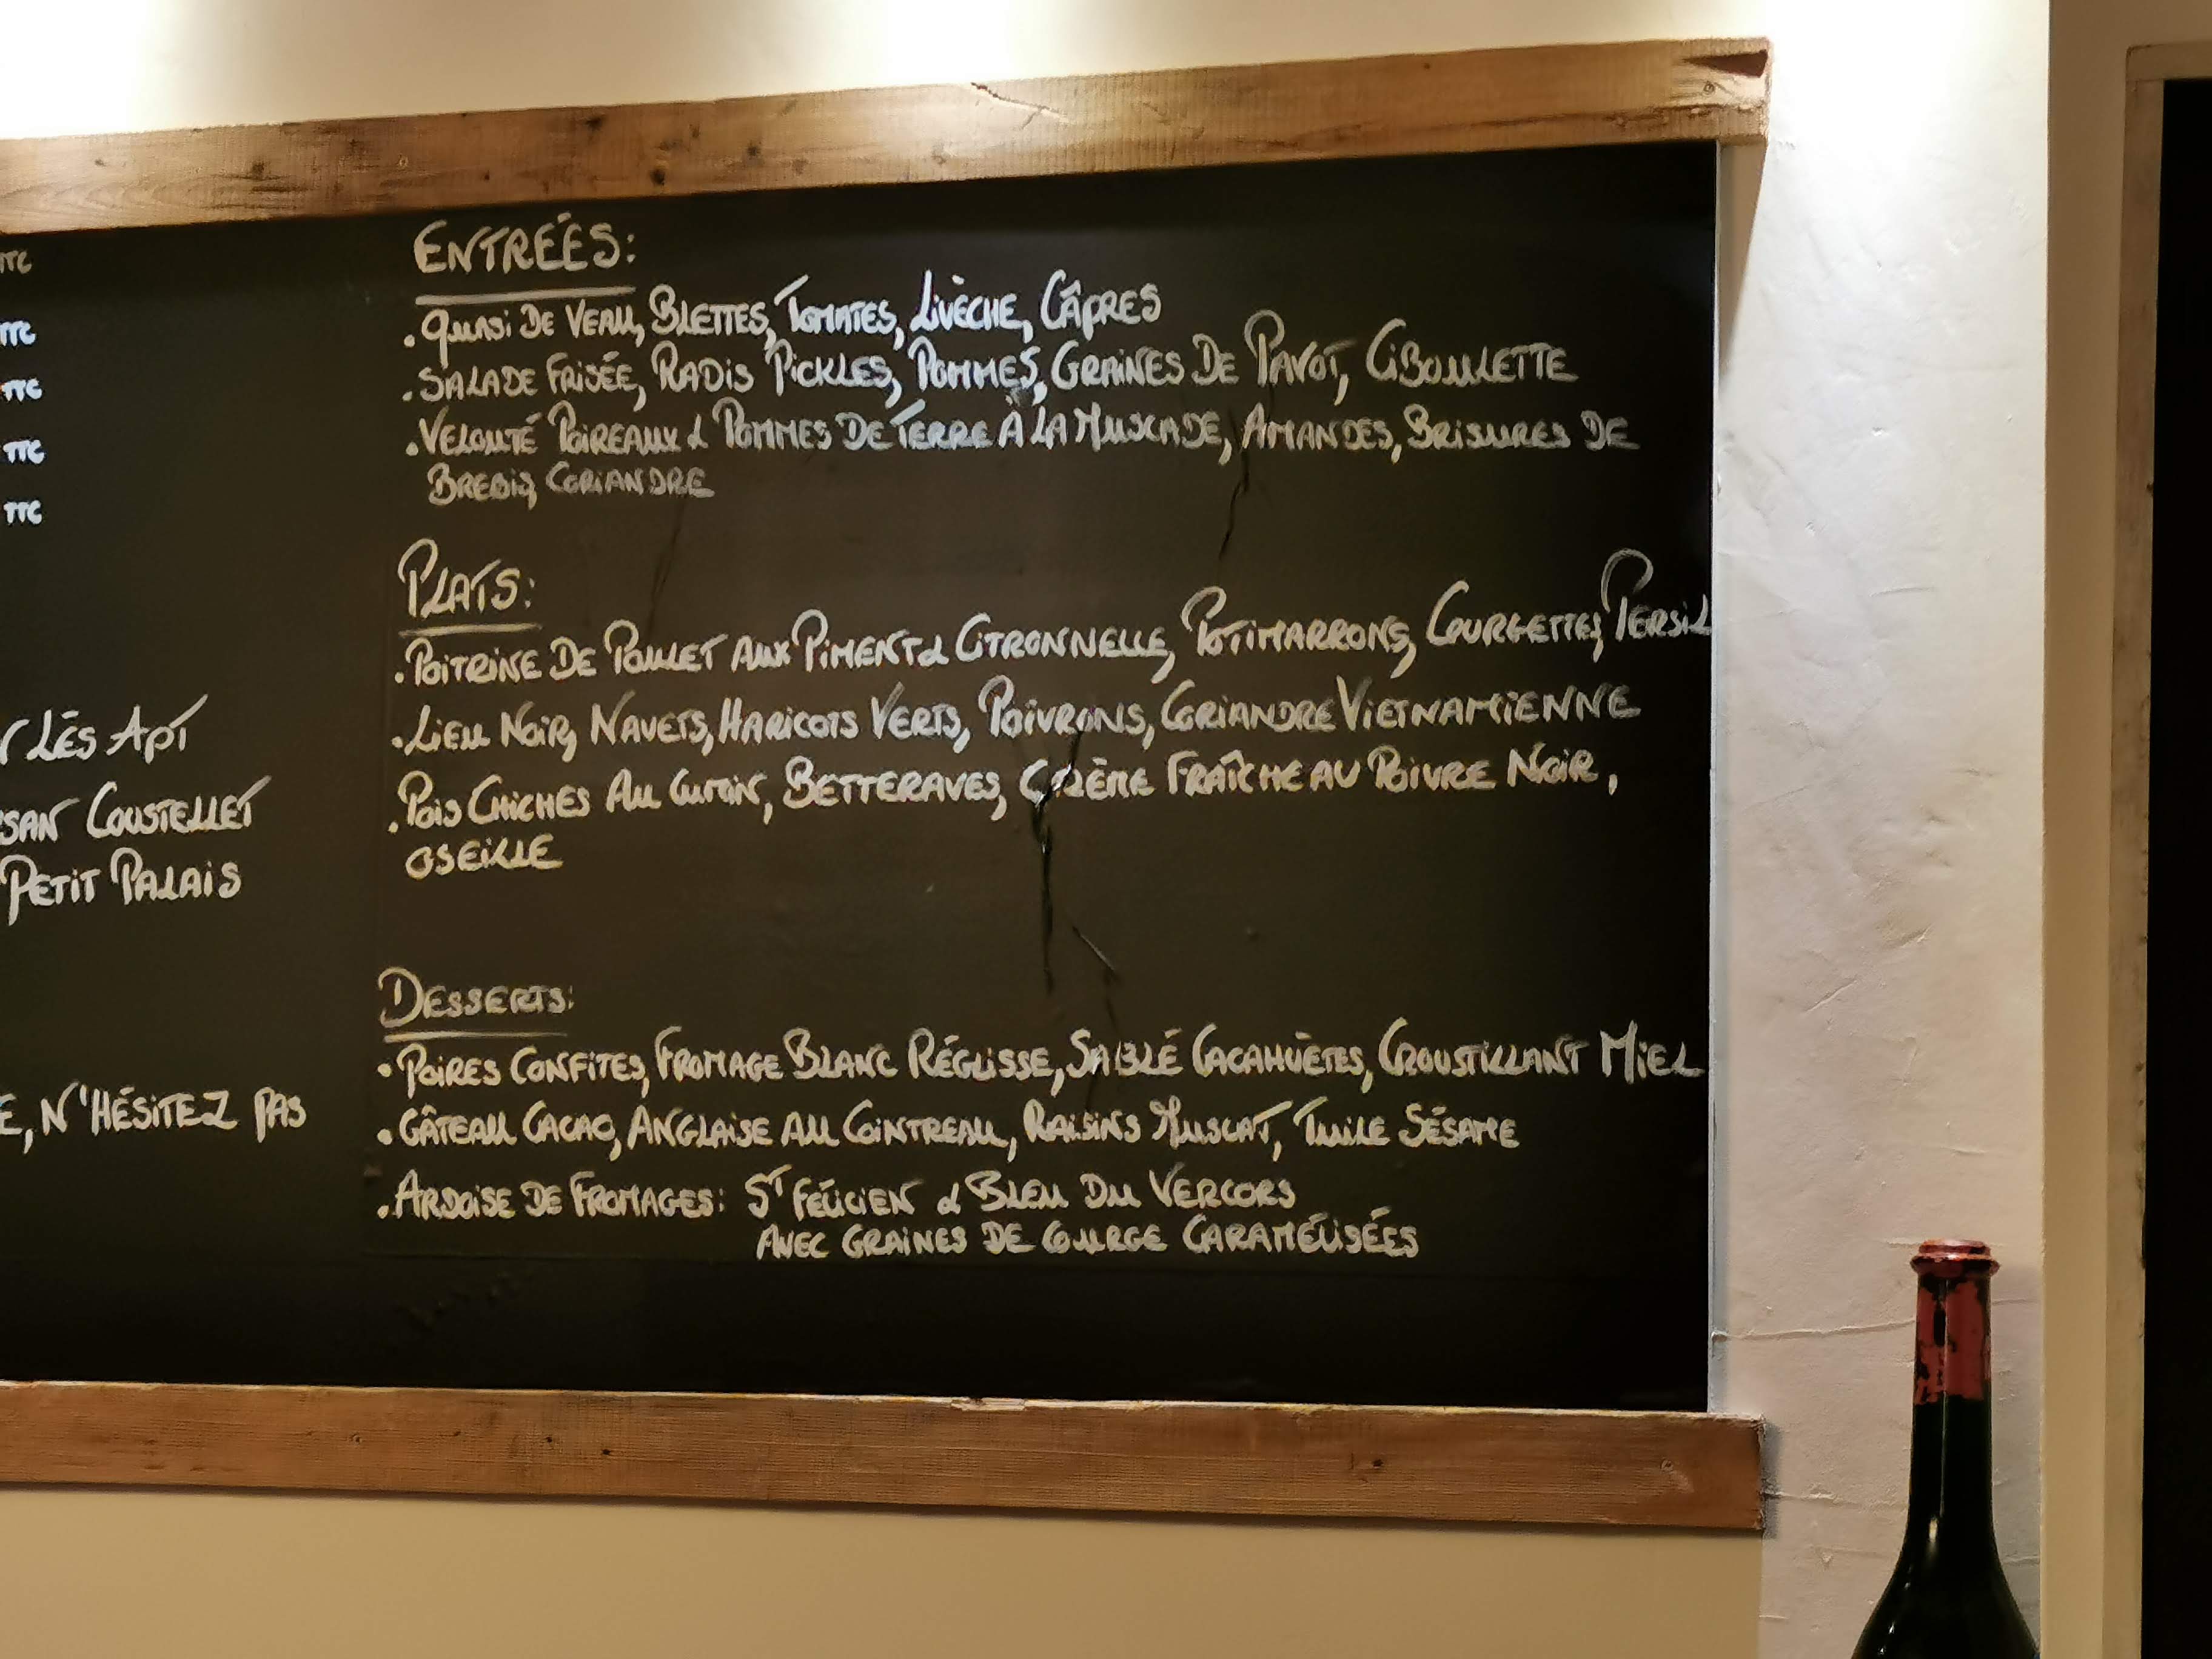 TTC
TTC
TTC
TTC
TTC
LÈS APT
SAN COUSTELLET
PETIT PALAIS
E, N'HÉSITEZ PAS
ENTRÉES:
. QUASI DE VEAU, BLETTES, TOMATES, LIVÈCHE, CÂPRES
. SALADE FRISÉE, RADIS PICKLES, POMMES, GRAINES DE PAVOT, CIBOULETTE
. VELOUTÉ POIREAUX & POMMES DE TERRE À LA MUSCADE, AMANDES, BRISURES DE
BREBIS, CORIANDRE
PLATS:
. POITRINE DE POULET AUX PIMENT & CITRONNELLE, POTIMARRONS, COURGETTES, PERSIL
. LIEU NOIR, NAVETS, HARICOTS VERTS, POIVRONS, CORIANDRE VIETNAMIENNE
. POIS CHICHES AU CUMIN, BETTERAVES, CRÈME FRAÎCHE AU POIVRE NOIR,
OSEILLE
DESSERTS:
. POIRES CONFITES, FROMAGE BLANC RÉGLISSE, SABLÉ CACAHUÈTES, CROUSTILLANT MIEL
. GÂTEAU CACAO, ANGLAISE AU COINTREAU, RAISINS MUSCAT, TUILE SÉSAME
. ARDOISE DE FROMAGES: ST FÉLICIEN & BLEU DU VERCORS
AVEC GRAINES DE COURGE CARAMÉLISÉES